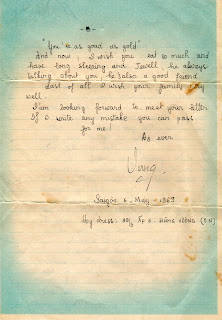 - 2 -
"You is as good as gold"
And now, I wish you eat so much and
have long sleeping and Jewell he always
talking about you, he is also a good friend
Last of all I wish your family my
well.
I am looking forward to meet your letter
If I write any mistake you can pass
for me!
As ever
Saigon 6 May - 1969
My adress: Ấp 2. HÙNG VƯƠNG